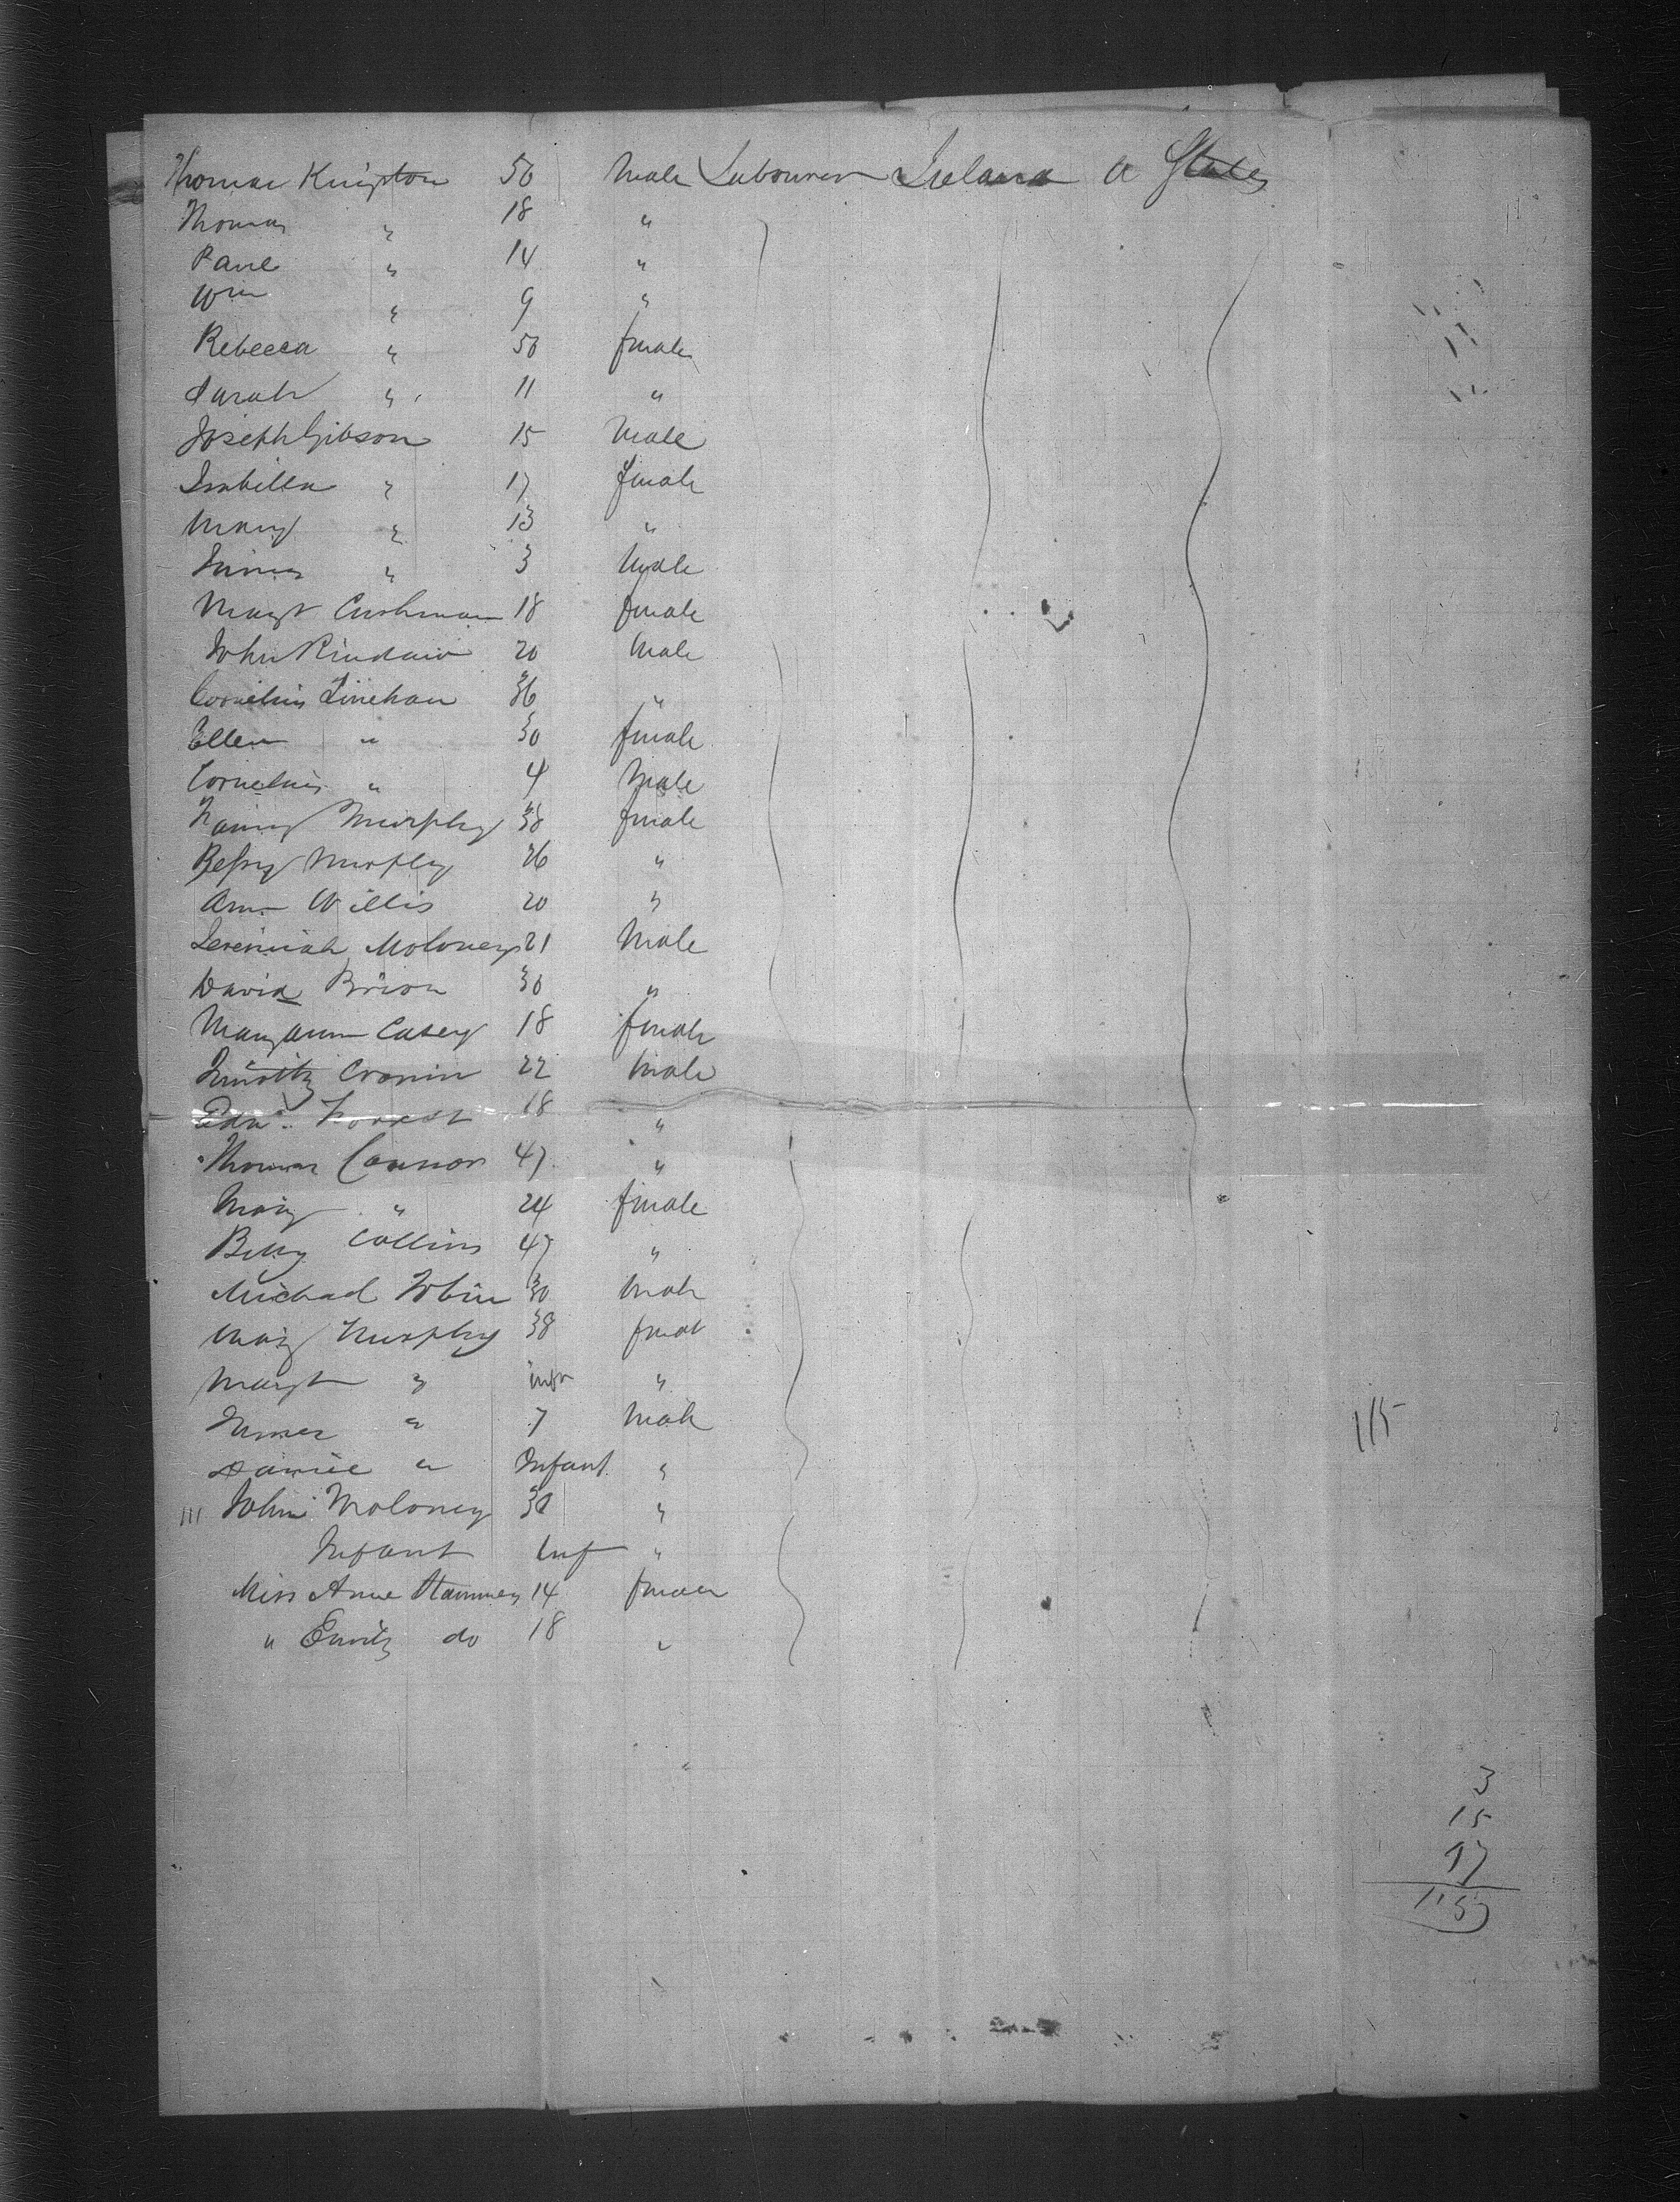 Thomas Knipton 50 Male Labourer Ireland U States
Thomas " 18 "
Paul " 14 "
Wm " 9 "
Rebecca " 50 female
Sarah " 11 "
Joseph Gibson 15 Male
Isabella " 17 female
Mary " 13 "
James " 3 Male
Margt Cushman 18 female
John 20 Male
Cornelius Linehan 36 "
Ellen " 30 female
Cornelius " 4 Male
Murphy 38 female
Bessy Murphy 26 "
Ann Willis 20 "
Jeremiah Moloney 21 Male
David Brion 30 "
Mary Ann Casey 18 female
Timothy Cronin 22 Male
Edwd. Forrest 18 "
Thomas Connor 47 "
Mary " 24 female
Betty Collins 47 "
Michael Tobin 30 Male
Mary Murphy 38 female
Margt " "
James " 7 Male
" Infant "
111 John Moloney 30 "
Infant Inf "
Miss Anne 14 female
" Emily do 18 "
115
3
15